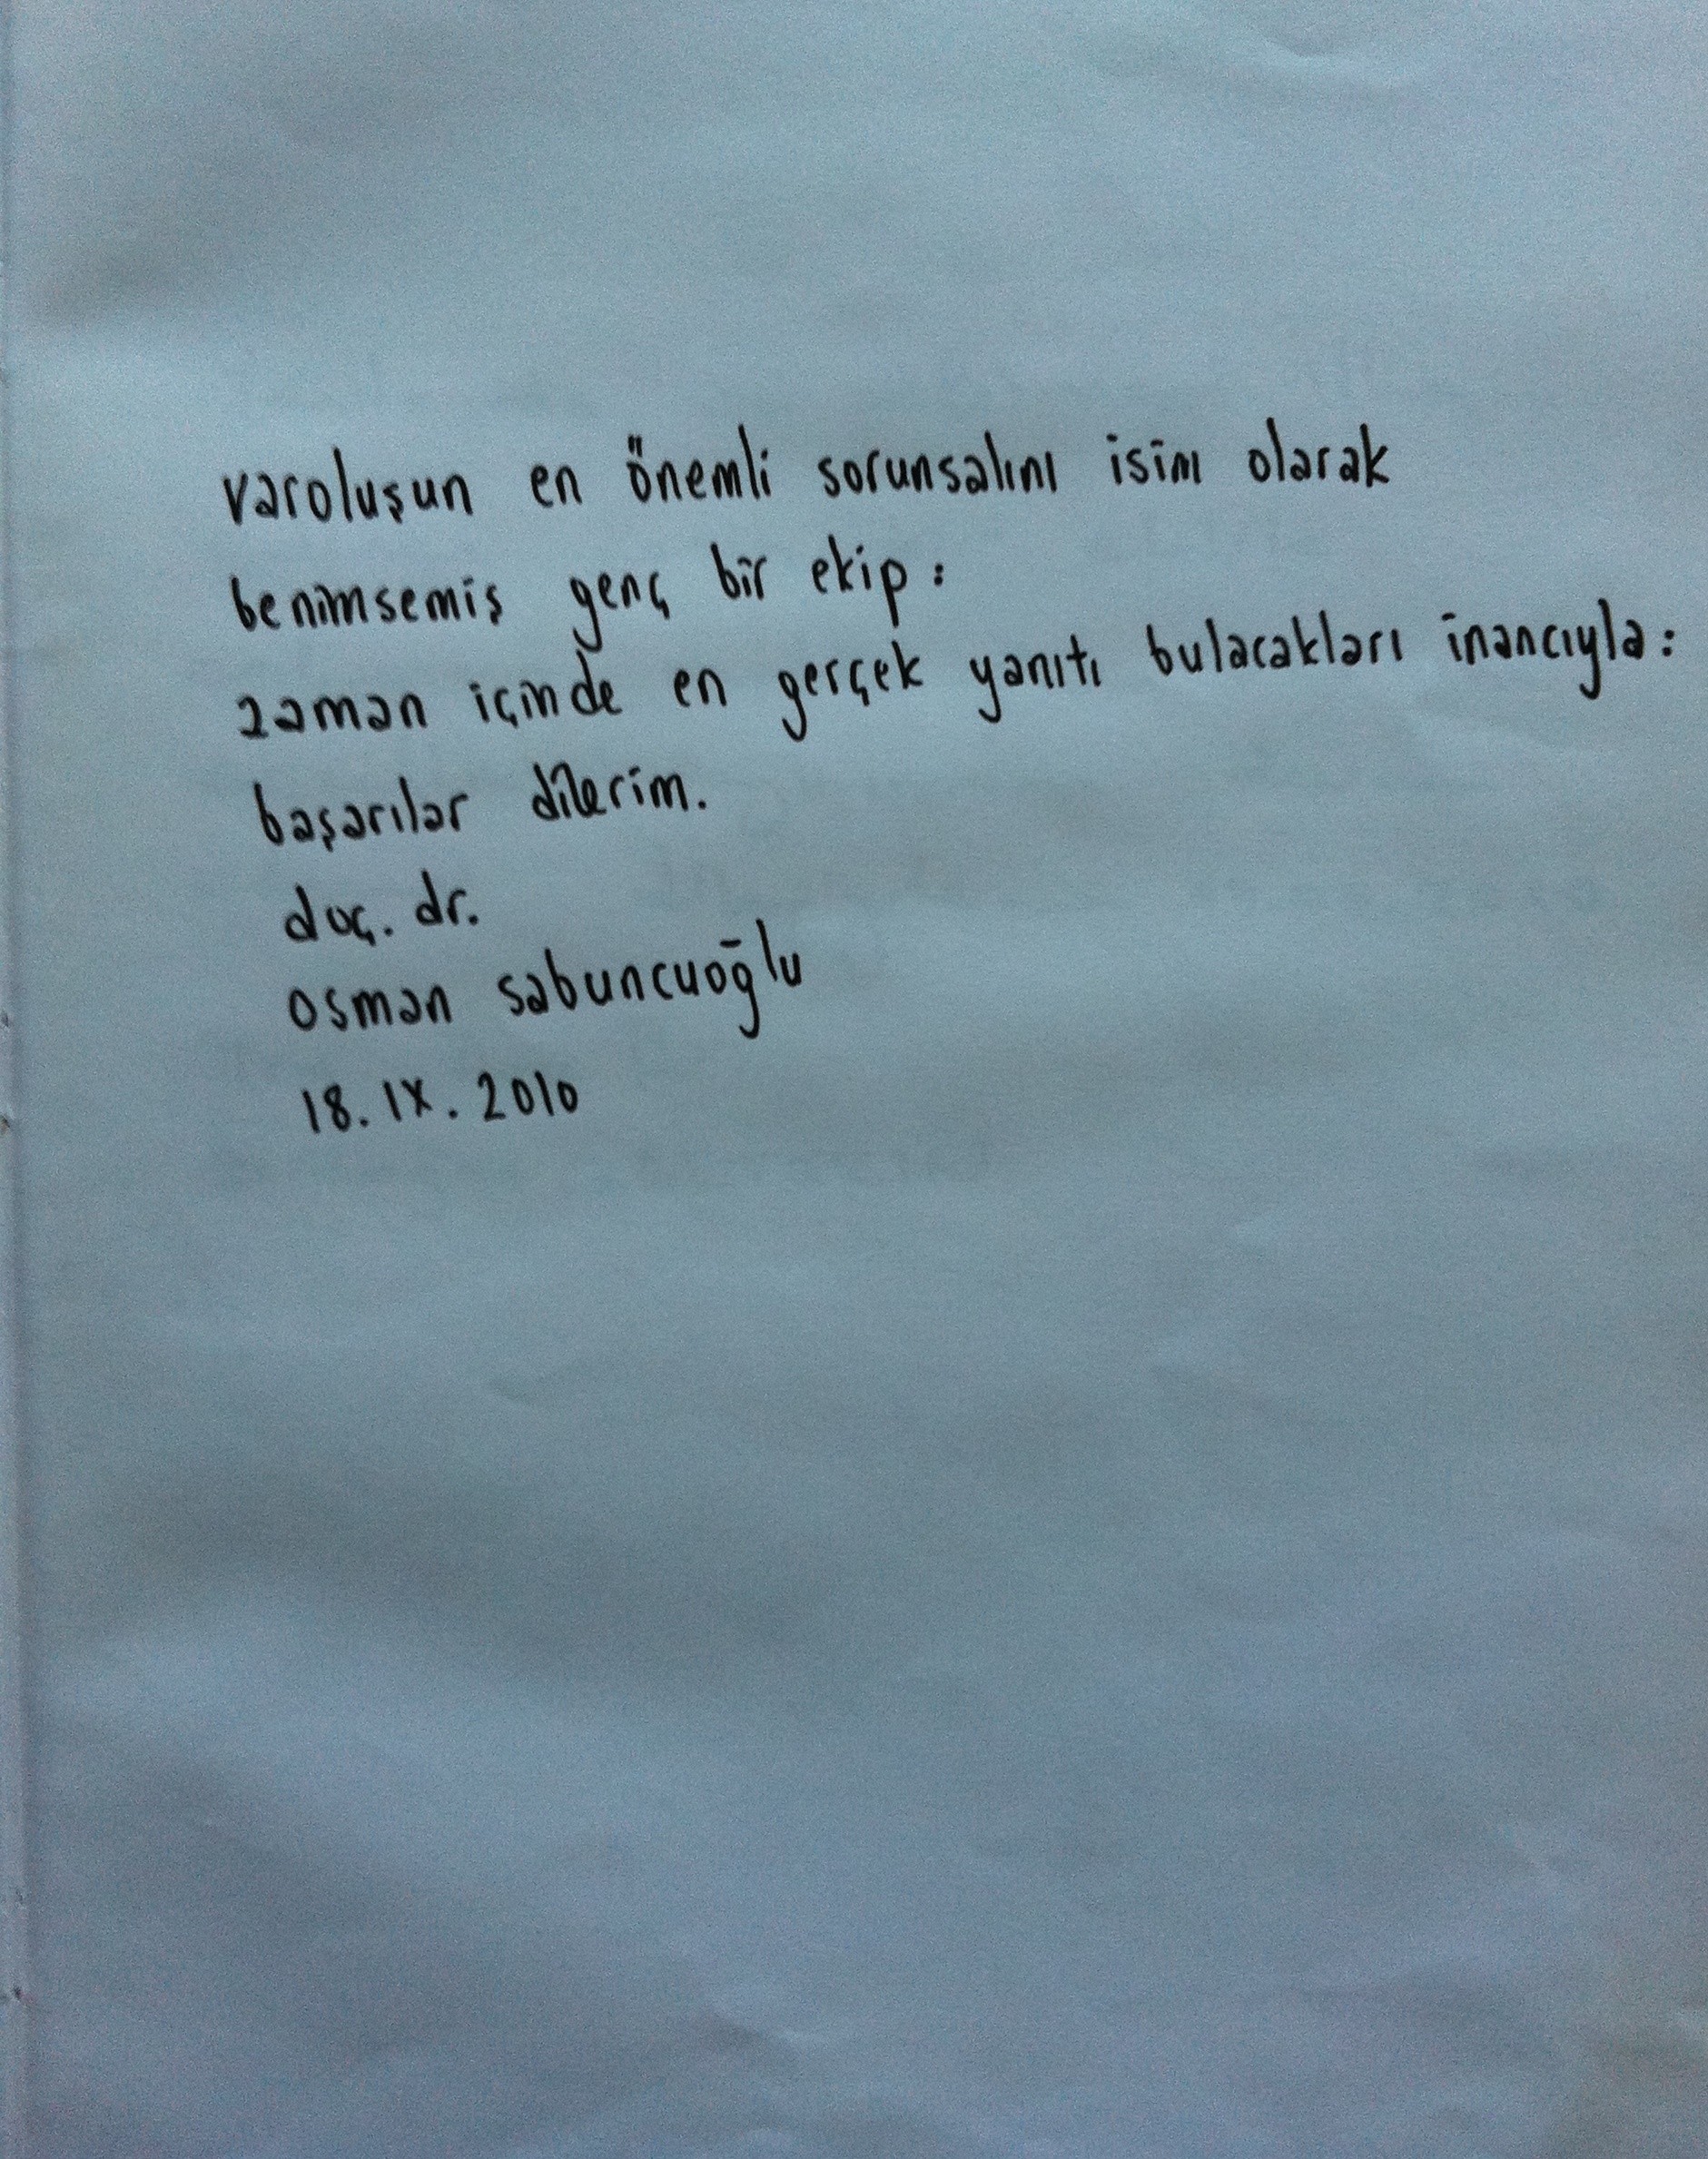 varoluşun en önemli sorunsalını isim olarak
benimsemiş genç bir ekip:
zaman içinde en gerçek yanıtı bulacakları inancıyla:
başarılar dilerim.
doç. dr.
osman sabuncuoğlu
18.IX.2010